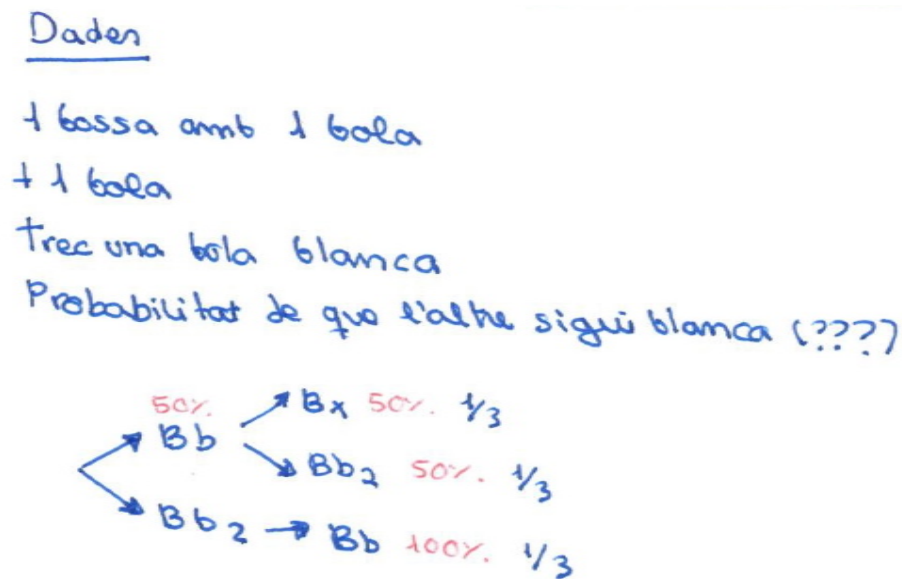 Dades
1 bossa amb 1 bola
+ 1 bola
Trec una bola blanca
Probabilitat de que l'altre sigui blanca (????)
50%. Bx 50%. 1/3
Bb
Bb2 50%. 1/3
Bb2 → Bb 100%. 1/3